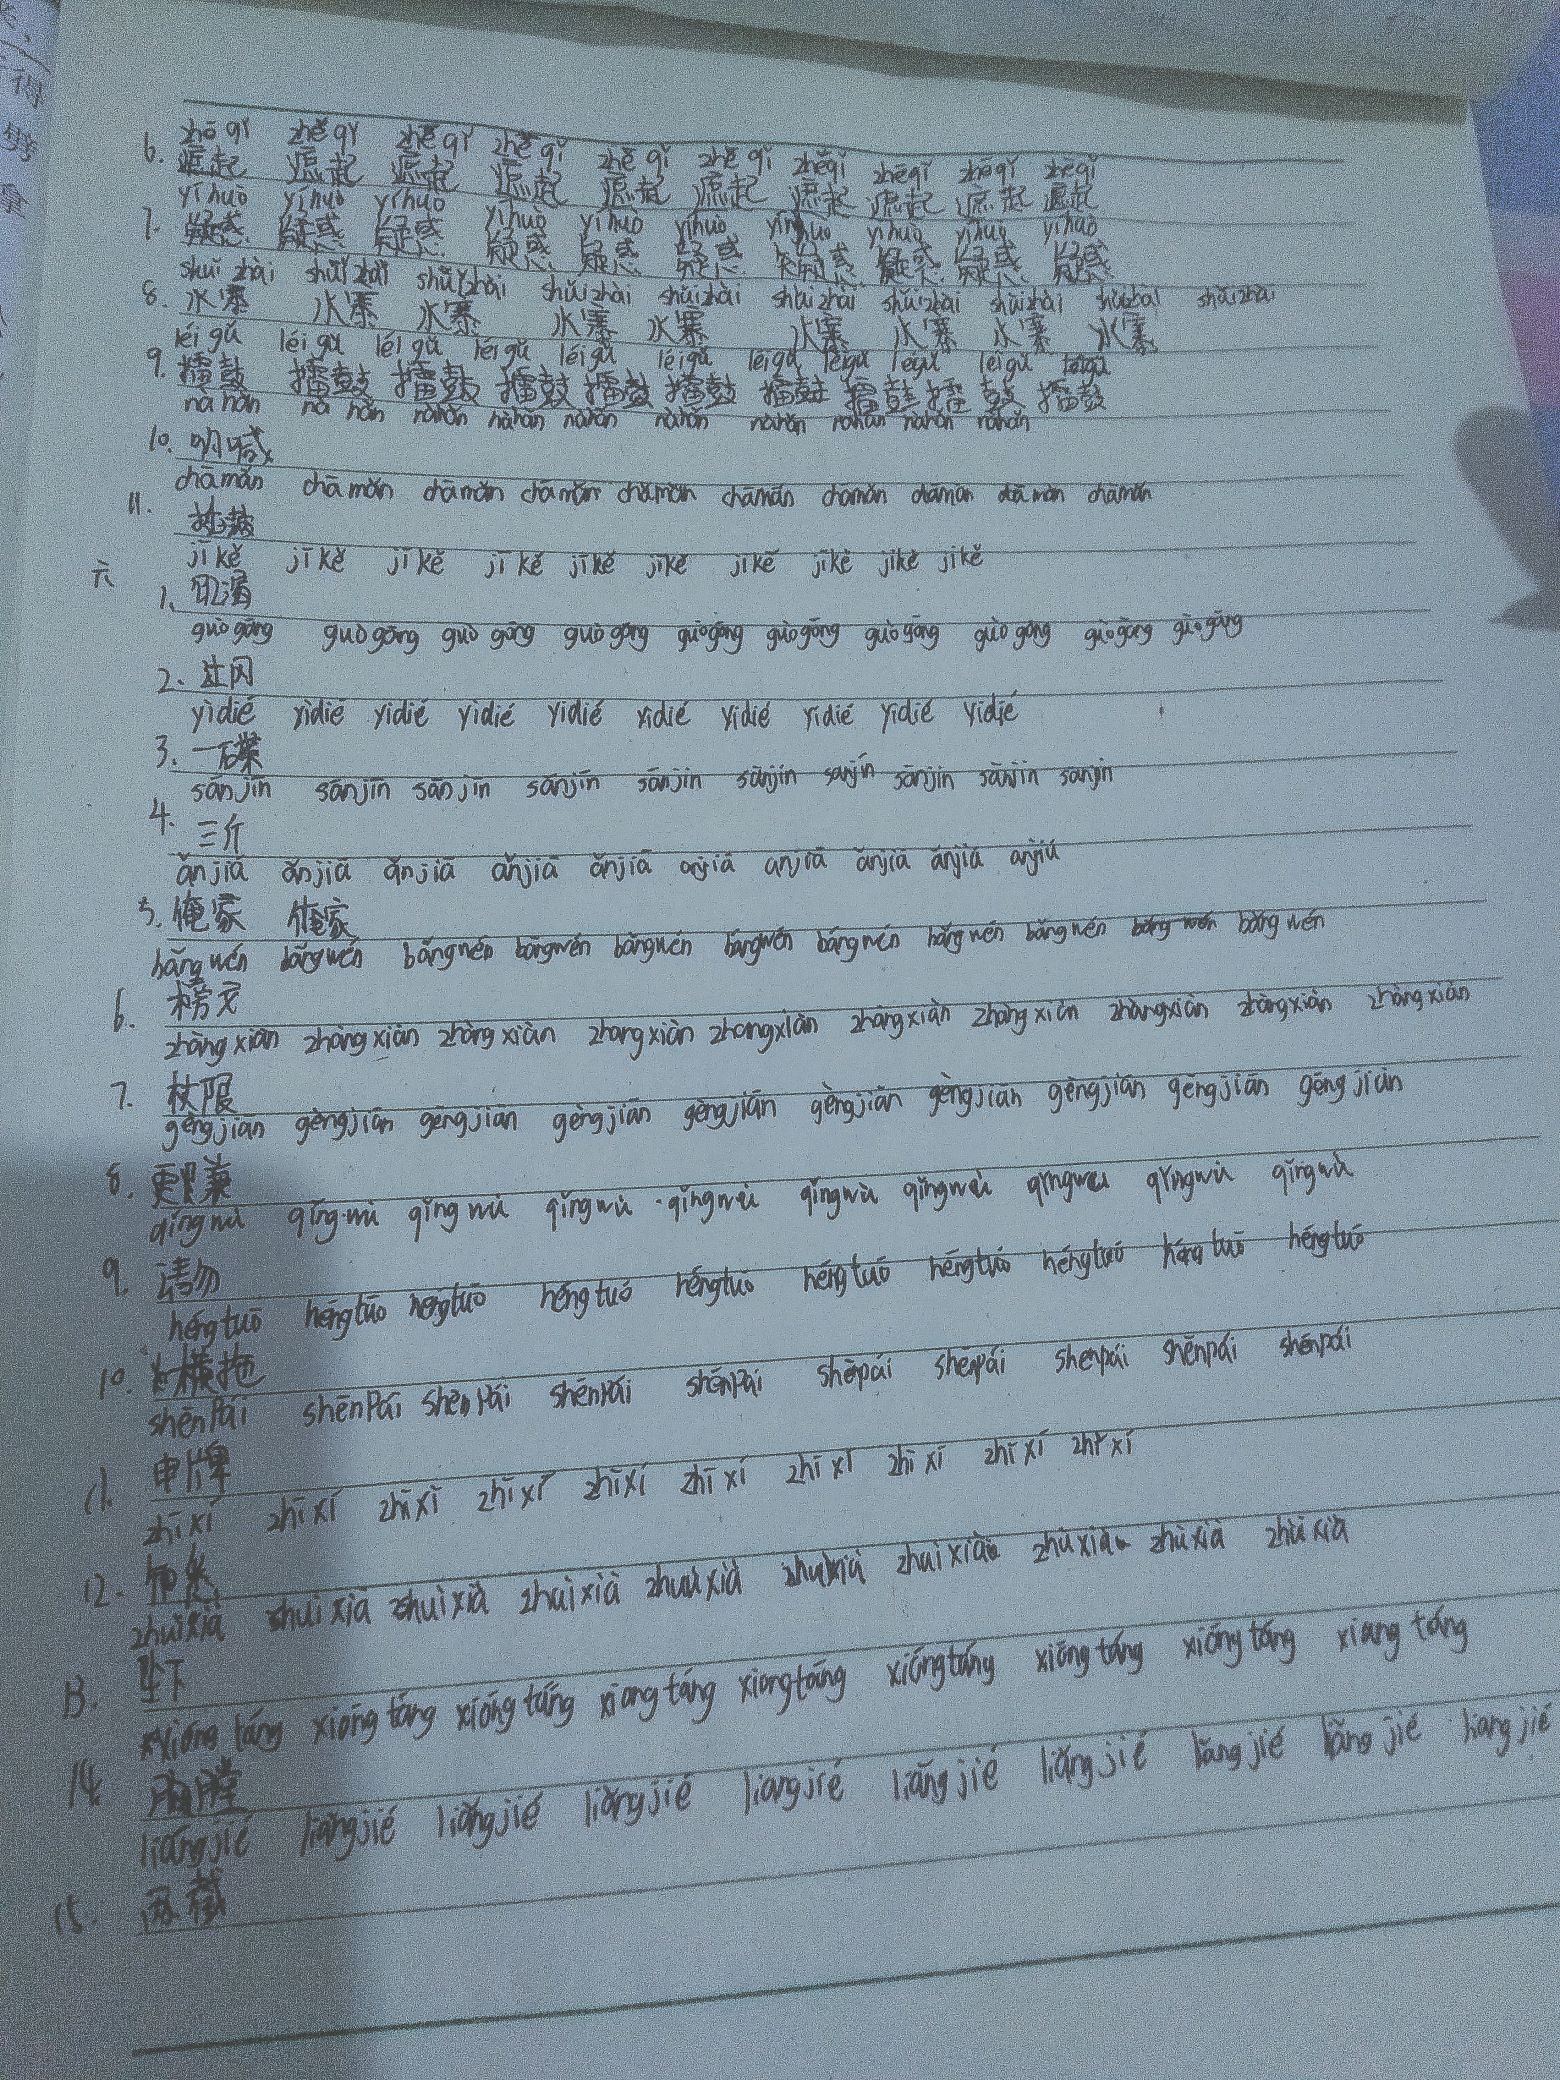 zhē qǐ zhē qǐ zhē qǐ zhē qǐ zhē qǐ zhē qǐ zhēqǐ zhēqǐ zhēqǐ zhēqǐ
6. 遮起 遮起 遮起 遮起 遮起 遮起 遮起 遮起 遮起 遮起
yí huò yí huò yí huò yí huò yí huò yí huò yí huò yí huò yí huò yí huò
7. 疑惑 疑惑 疑惑 疑惑 疑惑 疑惑 疑惑 疑惑 疑惑 疑惑
shuǐ zhài shuǐ zhài shuǐ zhài shuǐzhài shuǐzhài shuǐzhài shuǐzhài shuǐzhài shuǐzhài shuǐzhài
8. 水寨 水寨 水寨 水寨 水寨 水寨 水寨 水寨 水寨
léi gǔ léi gǔ léi gǔ léi gǔ léi gǔ léi gǔ léi gǔ léi gǔ léi gǔ léi gǔ
9. 擂鼓 擂鼓 擂鼓 擂鼓 擂鼓 擂鼓 擂鼓 擂鼓 擂鼓 擂鼓
nà hǎn nà hǎn nàhǎn nàhǎn nàhǎn nàhǎn nàhǎn nàhǎn nàhǎn nàhǎn
10. 呐喊
chāmǎn chāmǎn chāmǎn chāmǎn chāmǎn chāmǎn chāmǎn chāmǎn chāmǎn chāmǎn
11.
jī kě jī kě jī kě jī kě jī kě jī kě jī kě jī kě jī kě jī kě
六
1、饥渴
guò gāng guò gāng guò gāng guò gāng guò gāng guò gāng guò gāng guò gāng guò gāng guò gāng
2、过冈
yìdié yìdié yìdié yìdié yìdié yìdié yìdié yìdié yìdié yìdié
3、一碟
sānjīn sānjīn sānjīn sānjīn sānjīn sānjīn sānjīn sānjīn sānjīn sānjīn
4. 三斤
ǎnjiā ǎnjiā ǎnjiā ǎnjiā ǎnjiā ǎnjiā ǎnjiā ǎnjiā ǎnjiā ǎnjiā
5. 俺家 俺家
bǎng wén bǎngwén bǎngwén bǎngwén bǎngwén bǎngwén bǎngwén bǎngwén bǎngwén bǎngwén
6. 榜文
zhàng xiàn zhàng xiàn zhàng xiàn zhàng xiàn zhàng xiàn zhàng xiàn zhàng xiàn zhàng xiàn zhàng xiàn zhàng xiàn
7. 杖限
gèngjiān gèngjiān gèngjiān gèngjiān gèngjiān gèngjiān gèngjiān gèngjiān gèngjiān gèngjiān
8. 更兼
qǐng wù qǐng wù qǐng wù qǐng wù qǐng wù qǐng wù qǐng wù qǐng wù qǐng wù qǐng wù
9. 请勿
héngtuō héngtuō héngtuō héngtuō héngtuō héngtuō héngtuō héngtuō héngtuō héngtuō
10. 横拖
shēnpái shēnpái shēnpái shēnpái shēnpái shēpái shēnpái shēnpái shēnpái shēnpái
11. 申牌
zhī xī zhī xí zhī xī zhī xí zhī xí zhī xí zhī xī zhī xí zhī xí zhī xí
12. 知悉
zhuìxià zhuìxià zhuìxià zhuìxià zhuìxià zhuìxià zhuìxià zhuìxià zhuìxià zhuìxià
13. 坠下
xiōng táng xiōng táng xiōng táng xiōng táng xiōng táng xiōng táng xiōng táng xiōng táng xiong táng
14. 胸膛
liǎngjié liǎngjié liǎngjié liǎngjié liǎngjié liǎngjié liǎngjié liǎngjié liǎngjié liǎngjié
15. 两截